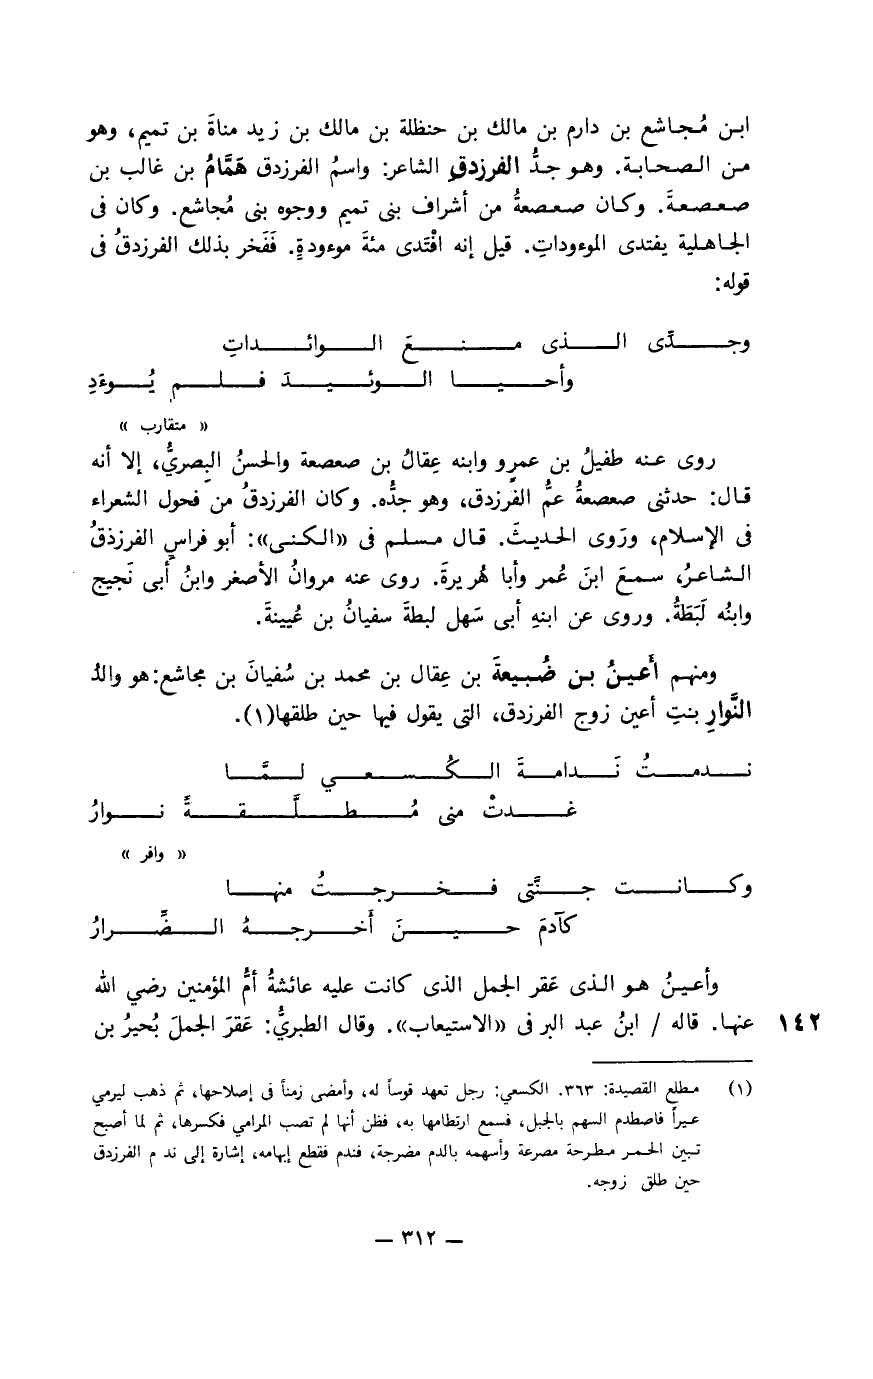 ابن مُجاشع بن دارم بن مالك بن حنظلة بن مالك بن زيد مناةَ بن تميم، وهو
من الصحابة. وهو جدُّ الفرزدقِ الشاعر: واسمُ الفرزدق هَمَّامُ بن غالب بن
صعصعةَ. وكان صعصعةُ من أشراف بنى تميم ووجوه بنى مُجاشع. وكان فى
الجاهلية يفتدى الموءوداتِ. قيل إنه افْتَدى مئةَ موءودةٍ. فَفَخر بذلك الفرزدقُ فى
قوله:
وجدِّى الذى منعَ الوائداتِ
وأحيا الوئيدَ فلم يُوءَدِ
« متقارب »
روى عنه طفيلُ بن عمرٍو وابنه عِقالُ بن صعصعة والحسنُ البصريُّ، إلا أنه
قال: حدثنى صعصعةُ عمُّ الفرزدق، وهو جدُّه. وكان الفرزدقُ من فحول الشعراء
فى الإسلام، ورَوى الحديثَ. قال مسلم فى «الكنى»: أبو فراسٍ الفرزذقُ
الشاعرُ، سمعَ ابنَ عُمر وأبا هُريرةَ. روى عنه مروانُ الأصغر وابنُ أبى نَجيج
وابنُه لَبَطَةُ. وروى عن ابنهِ أبى سَهل لبطةَ سفيانُ بن عُيينةَ.
ومنهم أَعينُ بن ضُبيعةَ بن عِقال بن محمد بن سُفيانَ بن مجاشع: هو والدُ
النَّوارِ بنتِ أعين زوج الفرزدق، التى يقول فيها حين طلقها(١).
ندمتُ نَدامةَ الكُسعي لمَّا
غدتْ منى مُطلَّقةً نوارُ
« وافر »
وكانت جنَّتى فخرجتُ منها
كآدمَ حينَ أَخرجهُ الضِّرارُ
وأعينُ هو الذى عَقر الجمل الذى كانت عليه عائشةُ أمُّ المؤمنين رضي الله
عنها. قاله / ابنُ عبد البر فى «الاستيعاب». وقال الطبريُّ: عَقرَ الجملَ بُحيرُ بن ١٤٢
(١) مطلع القصيدة: ٣٦٣. الكسعي: رجل تعهد قوساً له، وأمضى زمناً فى إصلاحها، ثم ذهب ليرمي
عيراً فاصطدم السهم بالجبل، فسمع ارتطامها به، فظن أنها لم تصب المرامي فكسرها، ثم لما أصبح
تبين الحمر مطرحة مصرعة وأسهمه بالدم مضرجة، فندم فقطع إبهامه، إشارة إلى ند م الفرزدق
حين طلق زوجه.
— ٣١٢ —